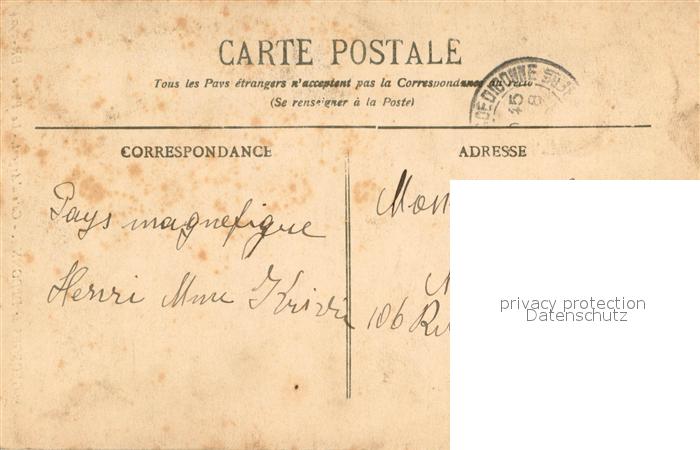 CARTE POSTALE
Tous les Pays étrangers n'acceptent pas la Correspondance au recto
(Se renseigner à la Poste)
CORRESPONDANCE
ADRESSE
Pays magnefique
Henri Mme
106
privacy protection
Datenschutz